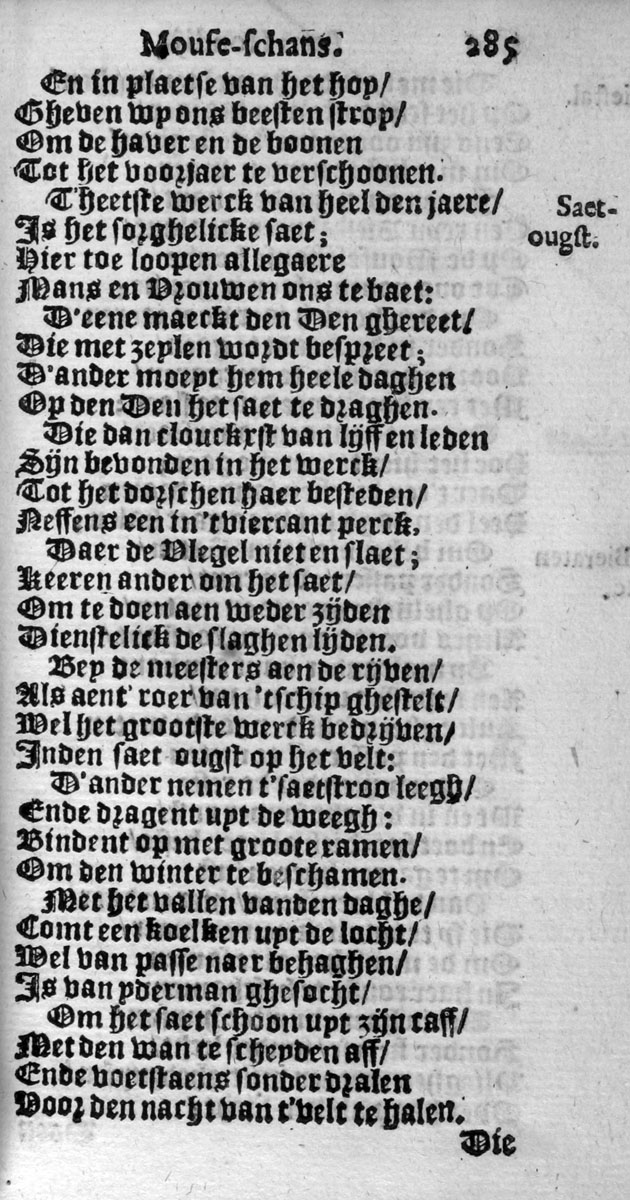 Moufe-schans. 285
En in plaetse van het hop/
Gheven wy ons beesten strop/
Om de haver en de boonen
Tot het voorjaer te verschoonen.
T'heetste werck van heel den jaere/
Saet-
Is het sorghelicke saet;
ougst.
Hier toe loopen allegaere
Mans en Vrouwen ons te baet:
D'eene maeckt den Den ghereet/
Die met zeylen wordt bespreet;
D'ander moeyt hem heele daghen
Op den Den het saet te draghen.
Die dan clouckxst van lijff en leden
Sijn bevonden in het werck/
Tot het dorschen haer besteden/
Neffens een in 'tviercant perck,
Daer de Vlegel niet en slaet;
Keeren ander om het saet/
Om te doen aen weder zijden
Dienstelick de slaghen lijden.
Bey de meesters aen de rijven/
Als aent' roer van 'tschip ghestelt/
Wel het grootste werck bedrijven/
Inden saet ougst op het velt:
D'ander nemen t'saetstroo leegh/
Ende dragent uyt de weegh:
Bindent op met groote ramen/
Om den winter te beschamen.
Met het vallen vanden daghe/
Comt een koelken uyt de locht/
Wel van passe naer behaghen/
Is van yderman ghesocht/
Om het saet schoon uyt zijn caff/
Met den wan te scheyden aff/
Ende voetstaens sonder dralen
Voor den nacht van t'velt te halen.
Die